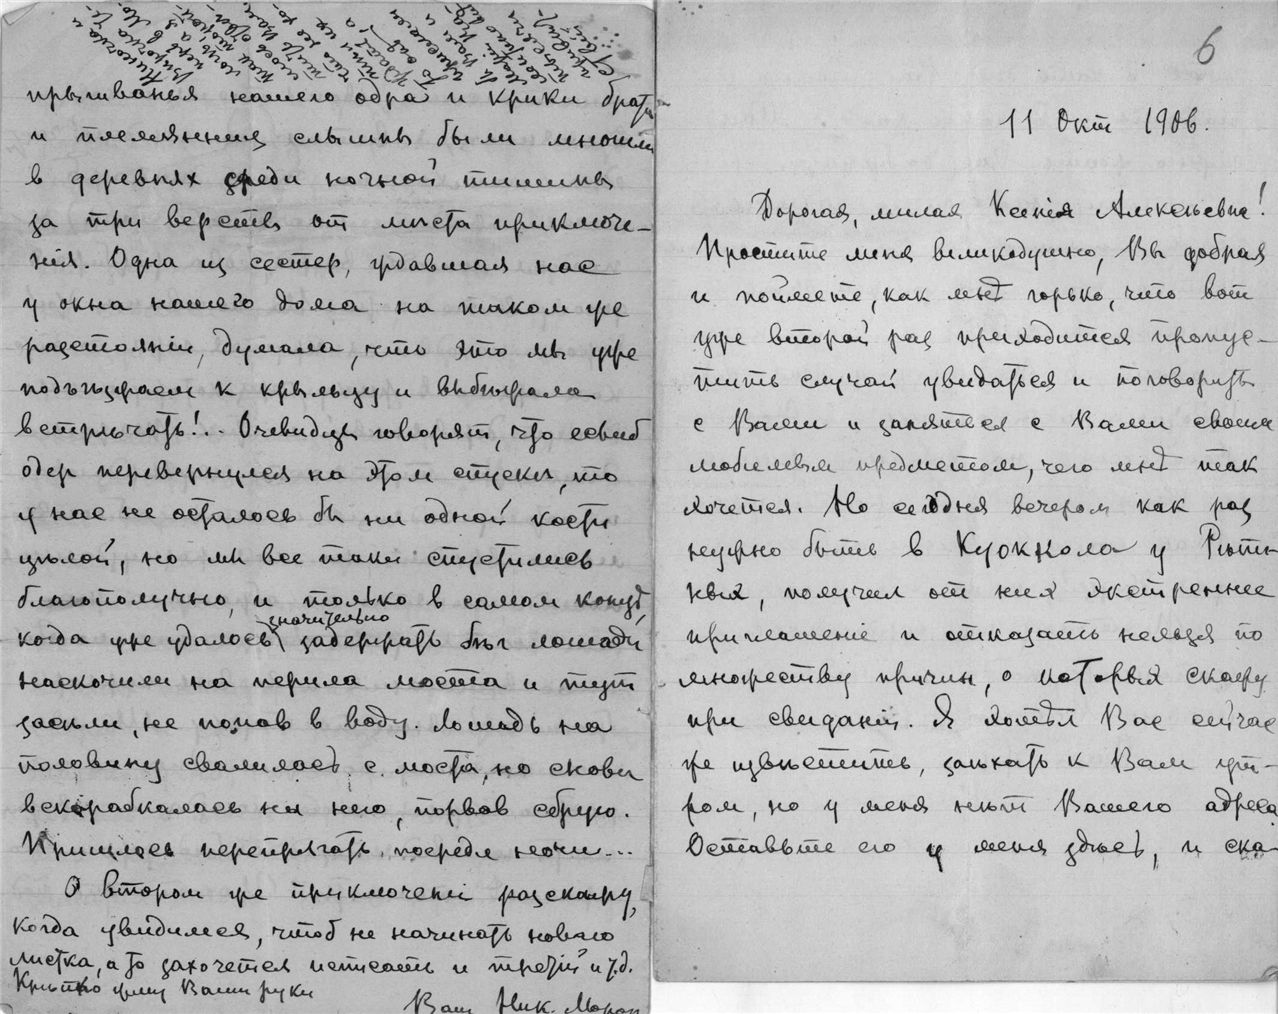 прыганья нашего одра и крики брата
и племянника слышны были многим
в деревнях среди ночной тишины
за три версты от мѣста приключе-
нія. Одна из сестер, ждавшая нас
у окна нашего дома на таком же
разстояніи, думала, что это мы уже
подъѣзжаем к крыльцу и выбѣжала
встрѣчать!.. Очевидцы говорят, что еслиб
одер перевернулся на этом спускѣ, то
у нас не осталось бы ни одной кости
цѣлой, но мы все таки спустились
благополучно, и только в самом концѣ,
когда уже удалось значительно задержать бѣг лошади,
наскочили на перила моста и тут
засѣли, не попав в воду. Лошадь на
половину свалилась с моста, но снова
вскарабкалась на него, порвав сбрую.
Пришлось перепрягать посреди ночи...
О втором же приключеніи разскажу,
когда увидимся, чтоб не начинать новаго
листка, а то захочется исписать и третій и т.д.
Крѣпко жму Ваши руки
Ваш Ник. Мороз
6
11 Окт 1906.
Дорогая, милая Ксенія Алексѣевна!
Простите меня великодушно, Вы добрая
и поймете, как мнѣ горько, что вот
уже второй раз приходится пропус-
тить случай увидаться и поговорить
с Вами и заняться с Вами своим
любимым предметом, чего мнѣ так
хочется. Но сегодня вечером как раз
нужно быть в Куоккола у Рѣпи-
ных, получил от них экстренное
приглашеніе и отказать нельзя по
множеству причин, о которых скажу
при свиданіи. Я хотѣл Вас сейчас
же извѣстить, заѣхать к Вам ут-
ром, но у меня нѣт Вашего адреса
Оставьте его у меня здѣсь, и ска-